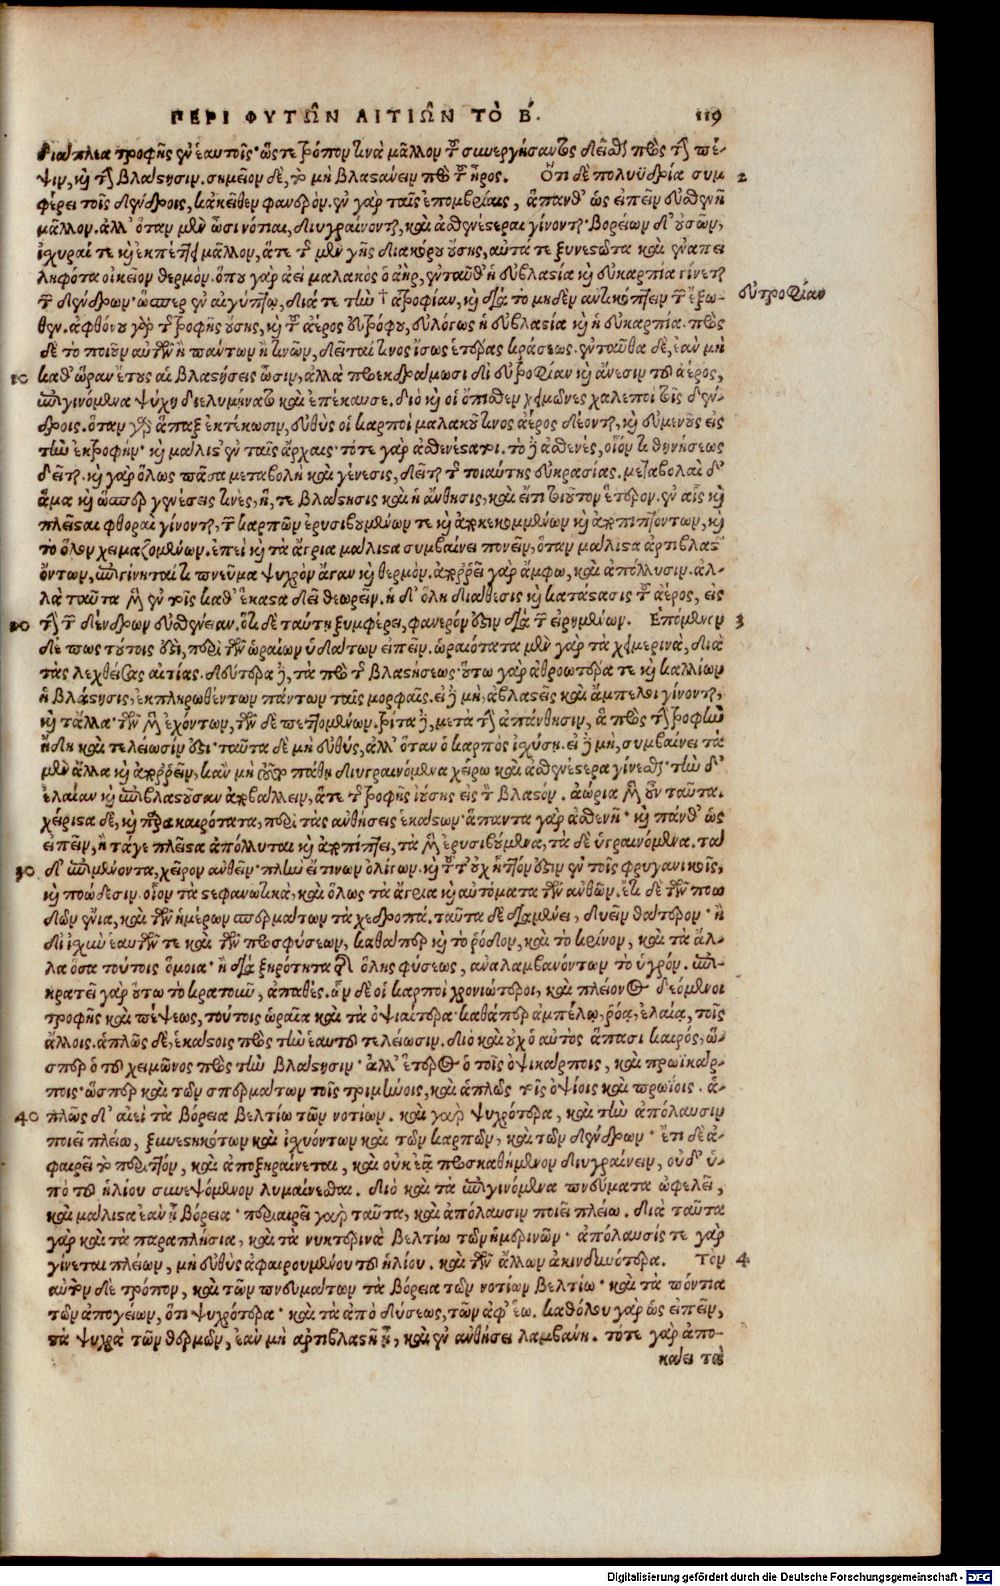 ΠΕΡΙ ΦΥΤΩ͂Ν ΑΙΤΙΩ͂Ν ΤῸ Β΄. 119
διαπλεα τροφῆς ἐν ἑαυτοῖς· ὥστε τρόπον τινὰ μᾶλλον τοῦ συνεργήσαντος δεῖσθαι πρὸς τὴν πέ-
ψιν, καὶ τὴν βλάστησιν. σημεῖον δὲ, τὸ μὴ βλαστάνειν πρὸ τοῦ ἦρος. Ὅτι δὲ πολυϋδρία συμ 2
φέρει τοῖς δένδροις, κἀκεῖθεν φανερόν. ἐν γὰρ ταῖς ἐπομβρίαις, ἅπανθ' ὡς εἰπεῖν εὐσθενῆ
μᾶλλον. ἀλλ' ὅταν μὲν ὦσι νότιαι, διυγραίνονται, καὶ ἀσθενέστεραι γίνονται· βορείων δ' οὐσῶν,
ἰσχυραί τε καὶ μᾶλλον, ἅτε τῆς μὲν γῆς διακόρου οὔσης, αὐτά τε ξυνεστῶτα καὶ ἐναπει
ληφότα οἰκεῖον θερμὸν. ὅπου γὰρ ἀεὶ μαλακὸς ὁ ἀὴρ, ἐνταῦθ' ἡ εὐβλαστία καὶ εὐκαρπία γίνεται
τῶν δένδρων· ὥσπερ ἐν αἰγύπτῳ, διά τε τὴν † ἀτροφίαν, καὶ διὰ τὸ μηδὲν ἀντικόπτειν τῶν ἔξω- εὐτροφίαν
θεν. ἀφθόνου γὰρ τῆς τροφῆς οὔσης, καὶ τοῦ ἀέρος εὐτρόφου, εὐλόγως ἡ εὐβλαστία καὶ ἡ εὐκαρπία. πρὸς
δὲ τὸ ποιοῦν αὐτῶν ἢ πάντων ἢ τινῶν, δεῖταί τινος ἴσως ἑτέρας κράσεως. ἐνταῦθα δὲ, ἐὰν μὴ
10 καθ' ὥραν ἔτους αἱ βλαστήσεις ὦσιν, ἀλλὰ προεκδράμωσι δι' εὐτροφίαν καὶ ἄνεσιν τοῦ ἀέρος,
ἐπιγινόμενα ψύχη διελυμήνατο καὶ ἐπέκαυσε. διὸ καὶ οἱ ὄπισθεν χειμῶνες χαλεποὶ τοῖς δέν-
δροις. ὅταν γὰρ ἅπαξ ἐκτέκωσιν, εὐθὺς οἱ καρποὶ μαλακοῦ τινος ἀέρος δέονται, καὶ εὐμενοῦς εἰς
τὴν ἐκτροφήν· καὶ μάλιστ' ἐν ταῖς ἀρχαῖς· τότε γὰρ ἀσθενέστατοι. τὸ δὲ ἀσθενὲς, οἷόν τι τιθηνήσεως
δεῖται. καὶ γὰρ ὅλως πᾶσα μεταβολὴ καὶ γένεσις, δεῖται τῆς τοιαύτης εὐκρασίας. μεταβολαὶ δ'
ἅμα καὶ ὥσπερ γενέσεις τινὲς, ἥ, τε βλάστησις καὶ ἡ ἄνθησις, καὶ ἔτι τούτων ἕτερον. ἐν αἷς καὶ
πλεῖσται φθοραὶ γίνονται, τῶν καρπῶν ἐρυσιβουμένων τε καὶ ἀποκεκομμένων καὶ ἀποπιπτόντων, καὶ
τὸ ὅλον χειμαζομένων. ἐπεὶ καὶ τὰ ἄγρια μάλιστα συμβαίνει πονεῖν, ὅταν μάλιστα ἀρτιβλαστ
όντων, ἐπιγίνηταί τι πνεῦμα ψυχρὸν ἄγαν καὶ θερμόν. ἀπορρεῖ γὰρ ἄμφω, καὶ ἀπόλλυσιν. ἀλ-
λὰ ταῦτα μὲν ἐν τοῖς καθ' ἕκαστα δεῖ θεωρεῖν. ἡ δ' ὅλη διάθεσις καὶ κατάστασις τοῦ ἀέρος, εἰς
20 τὴν τῶν δένδρων εὐσθένειαν. ὅτι δὲ ταύτῃ ξυμφέρει, φανερόν ἐστιν διὰ τῶν εἰρημένων. Ἑπόμενον 3
δέ πως τούτοις ἐστὶ, περὶ τῶν ὡραίων ὑδάτων εἰπεῖν. ὡραιότατα μὲν γὰρ τὰ χειμερινὰ, διὰ
τὰς λεχθείσας αἰτίας. δεύτερα δὲ, τὰ πρὸ τῆς βλαστήσεως· οὕτω γὰρ ἀθροωτέρα τε καὶ καλλίων
ἡ βλάστησις, ἐκπληρωθέντων πάντων ταῖς μορφαῖς. εἰ δὲ μὴ, ἀβλαστεῖς καὶ ἄμπελοι γίνονται,
καὶ τἄλλα· τῶν μὲν ἐχόντων, τῶν δὲ πεττομένων. τρίτα δὲ, μετὰ τὴν ἀπάνθησιν, ἃ πρὸς τὴν τροφὴν
ἤδη καὶ τελείωσιν ἐστι· ταῦτα δὲ μὴ εὐθὺς, ἀλλ' ὅταν ὁ καρπὸς ἰσχύσῃ. εἰ δὲ μὴ, συμβαίνει τὰ
μὲν ἄλλα καὶ ἀπορρεῖν, κἂν μὴ τοῦτο πάθῃ διυγραινόμενα χείρω καὶ ἀσθενέστερα γίνεσθαι· τὴν δ'
ἐλαίαν καὶ ἐπιβλαστοῦσαν ἀποβάλλειν, ἅτε τῆς τροφῆς ἰούσης εἰς τὸν βλαστόν. ἀώρια μὲν οὖν ταῦτα.
χείριστα δὲ, καὶ παρακαιρότατα, περὶ τὰς ἀνθήσεις ἑκάστων. ἅπαντα γὰρ ἀσθενῆ· καὶ πάνθ' ὡς
εἰπεῖν, ἢ τάγε πλεῖστα ἀπόλλυται καὶ ἀποπίπτει, τὰ μὲν ἐρυσιβούμενα, τὰ δὲ ὑγραινόμενα. τὰ
30 δ' ἐπιμένοντα, χεῖρον ἀνθεῖν· πλὴν εἴ τινων ὀλίγων. καὶ τοῦτ' οὐχ ἧττόν ἐστιν ἐν τοῖς φρυγανικοῖς,
καὶ ποώδεσιν. οἷον τὰ στεφανωτικὰ, καὶ ὅλως τὰ ἄγρια καὶ αὐτόματα τῶν ἀνθῶν. ἔτι δὲ τῶν ποω
δῶν ἔνια, καὶ τῶν ἡμέρων σπερμάτων τὰ χεδροπά. ταῦτα δὲ διαμένει, δυεῖν θάτερον· ἢ
δι' ἰσχὺν ἑαυτῶν τε καὶ τῶν προσφύσεων, καθάπερ καὶ τὸ ῥόδον, καὶ τὸ κρίνον, καὶ τὰ ἄλ-
λα ὅσα τούτοις ὅμοια· ἢ διὰ ξηρότητα τῆς ὅλης φύσεως, ἀναλαμβανόντων τὸ ὑγρόν. ἐπι-
κρατεῖ γὰρ οὕτω τὸ κρατοῦν, ἀπαθές. ὧν δὲ οἱ καρποὶ χρονιώτεροι, καὶ πλείονος δεόμενοι
τροφῆς καὶ πέψεως, τούτοις ὡραῖα καὶ τὰ ὀψιαίτερα· καθάπερ ἀμπέλῳ, ῥόᾳ, ἐλαίᾳ, τοῖς
ἄλλοις. ἁπλῶς δὲ, ἑκάστοις πρὸς τὴν ἑαυτοῦ τελείωσιν. διὸ καὶ οὐχ ὁ αὐτὸς ἅπασι καιρὸς, ὥ-
σπερ ὁ τοῦ χειμῶνος πρὸς τὴν βλάστησιν· ἀλλ' ἕτερος ὁ τοῖς ὀψικάρποις, καὶ πρωϊκάρ-
ποις· ὥσπερ καὶ τῶν σπερμάτων τοῖς τριμήνοις, καὶ ἁπλῶς τοῖς ὀψίοις καὶ πρωΐοις. ἁ-
40 πλῶς δ' αἰεὶ τὰ βόρεια βελτίω τῶν νοτίων. καὶ γὰρ ψυχρότερα, καὶ τὴν ἀπόλαυσιν
ποιεῖ πλείω, ξυνεστηκότων καὶ ἰσχυόντων καὶ τῶν καρπῶν, καὶ τῶν δένδρων· ἔτι δὲ ἀ-
φαιρεῖ τὸ περιττόν, καὶ ἀποξηραίνεται, καὶ οὐκ ἐᾷ προσκαθήμενον διυγραίνειν, οὐδ' ὑ-
πὸ τοῦ ἡλίου συνεψόμενον λυμαίνεσθαι. διὸ καὶ τὰ ἐπιγινόμενα πνεύματα ὠφελεῖ,
καὶ μάλιστα ἐὰν ᾖ βόρεια· περιαιρεῖ γὰρ ταῦτα, καὶ ἀπόλαυσιν ποιεῖ πλείω. διὰ ταῦτα
γὰρ καὶ τὰ παραπλήσια, καὶ τὰ νυκτερινὰ βελτίω τῶν ἡμερινῶν· ἀπόλαυσίς τε γὰρ
γίνεται πλείων, μὴ εὐθὺς ἀφαιρουμένου τοῦ ἡλίου. καὶ τῶν ἄλλων ἀκινδυνότερα. Τὸν 4
αὐτὸν δὲ τρόπον, καὶ τῶν πνευμάτων τὰ βόρεια τῶν νοτίων βελτίω· καὶ τὰ πόντια
τῶν ἀπογείων, ὅτι ψυχρότερα· καὶ τὰ ἀπὸ δύσεως, τῶν ἀφ' ἕω. καθόλου γὰρ ὡς εἰπεῖν,
τὰ ψυχρὰ τῶν θερμῶν, ἐὰν μὴ ἀρτιβλαστῆ ᾖ, καὶ ἐν ἀνθήσει λαμβάνῃ. τότε γὰρ ἀπο-
κάει τὰ
Digitalisierung gefördert durch die Deutsche Forschungsgemeinschaft - DFG